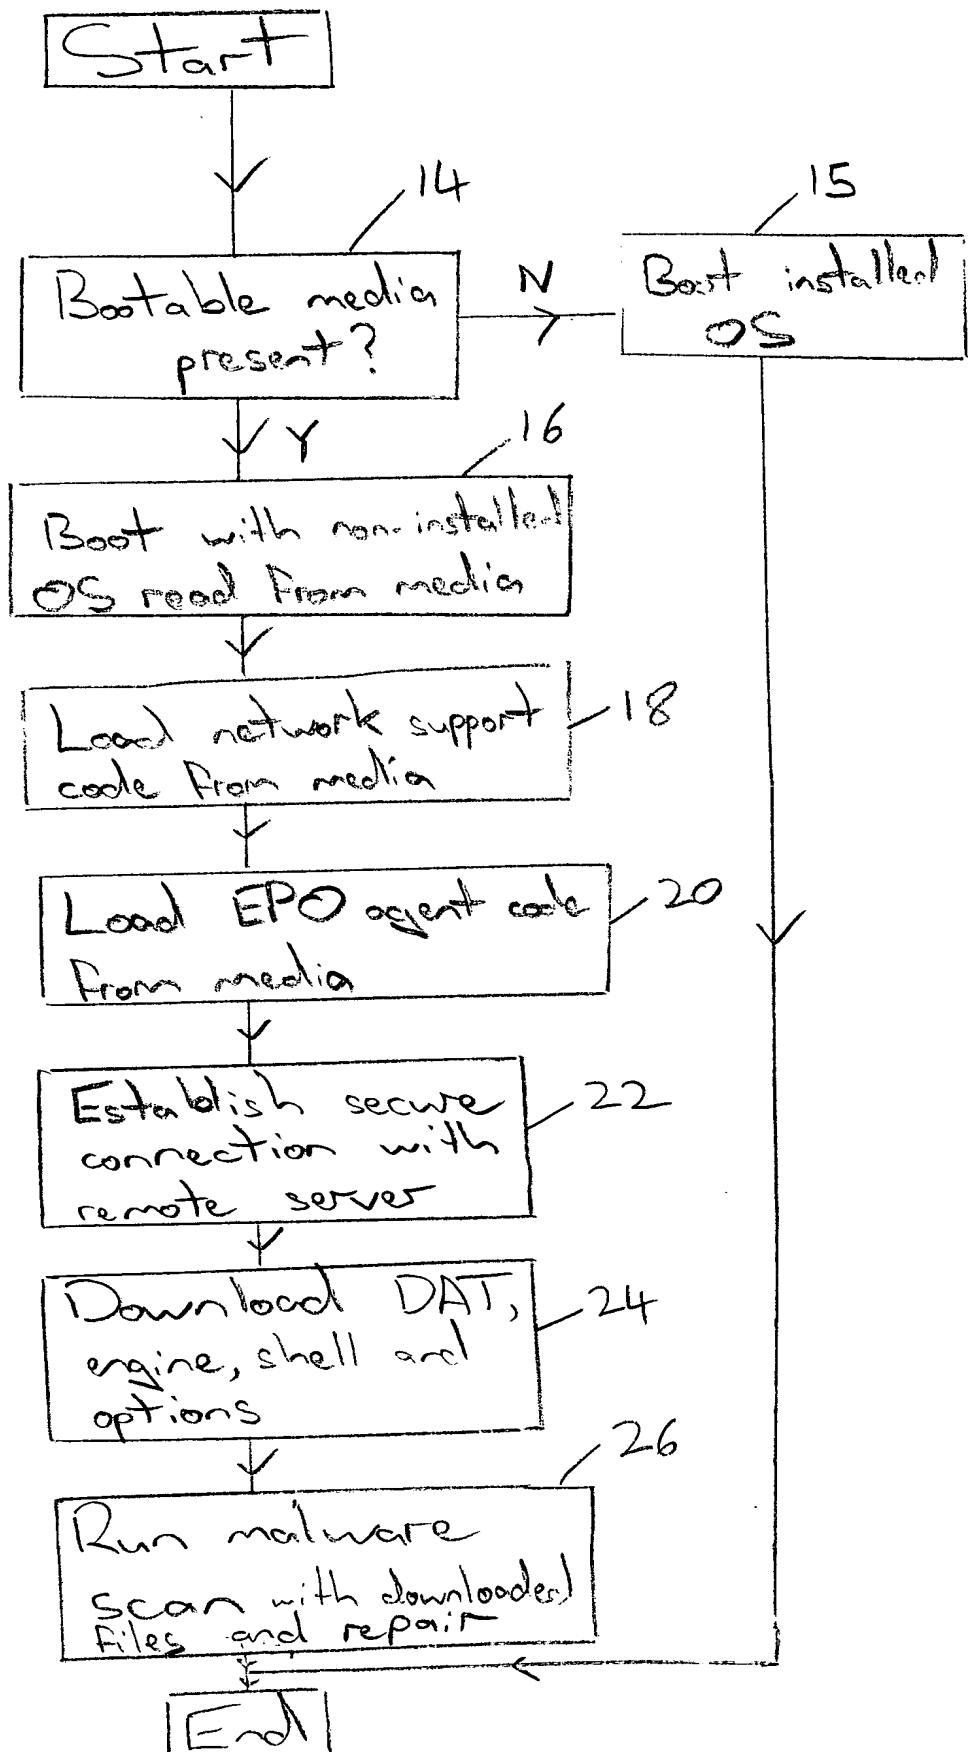 Start
14
Bootable media
present?
N
15
Boot installed
OS
Y
16
Boot with non-installed
OS read from media
18
Load network support
code from media
20
Load EPO agent code
from media
22
Establish secure
connection with
remote server
24
Download DAT,
engine, shell and
options
26
Run malware
scan with downloaded
files and repair
End